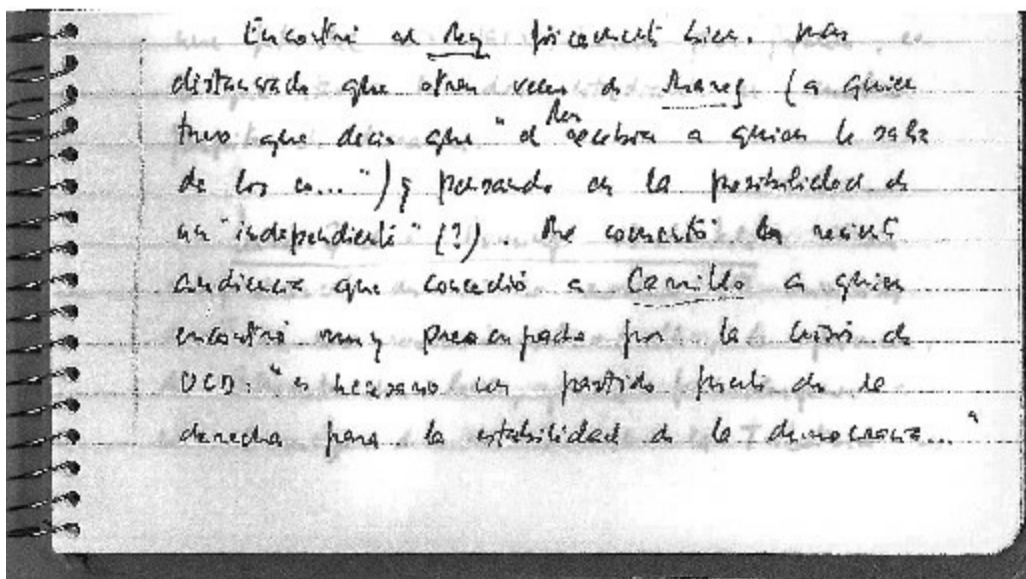 Encontré al Rey físicamente bien. Más
distanciado que otras veces de Suárez (a quien
tuvo que decir que "el Rey recibía a quien le salía
de los co...") y pensando en la posibilidad de
un "independiente" (?) Me comentó la reciente
audiencia que concedió a Carrillo a quien
encontró muy preocupado por la crisis de
UCD: "es necesario un partido fuerte de la
derecha para la estabilidad de la democracia..."